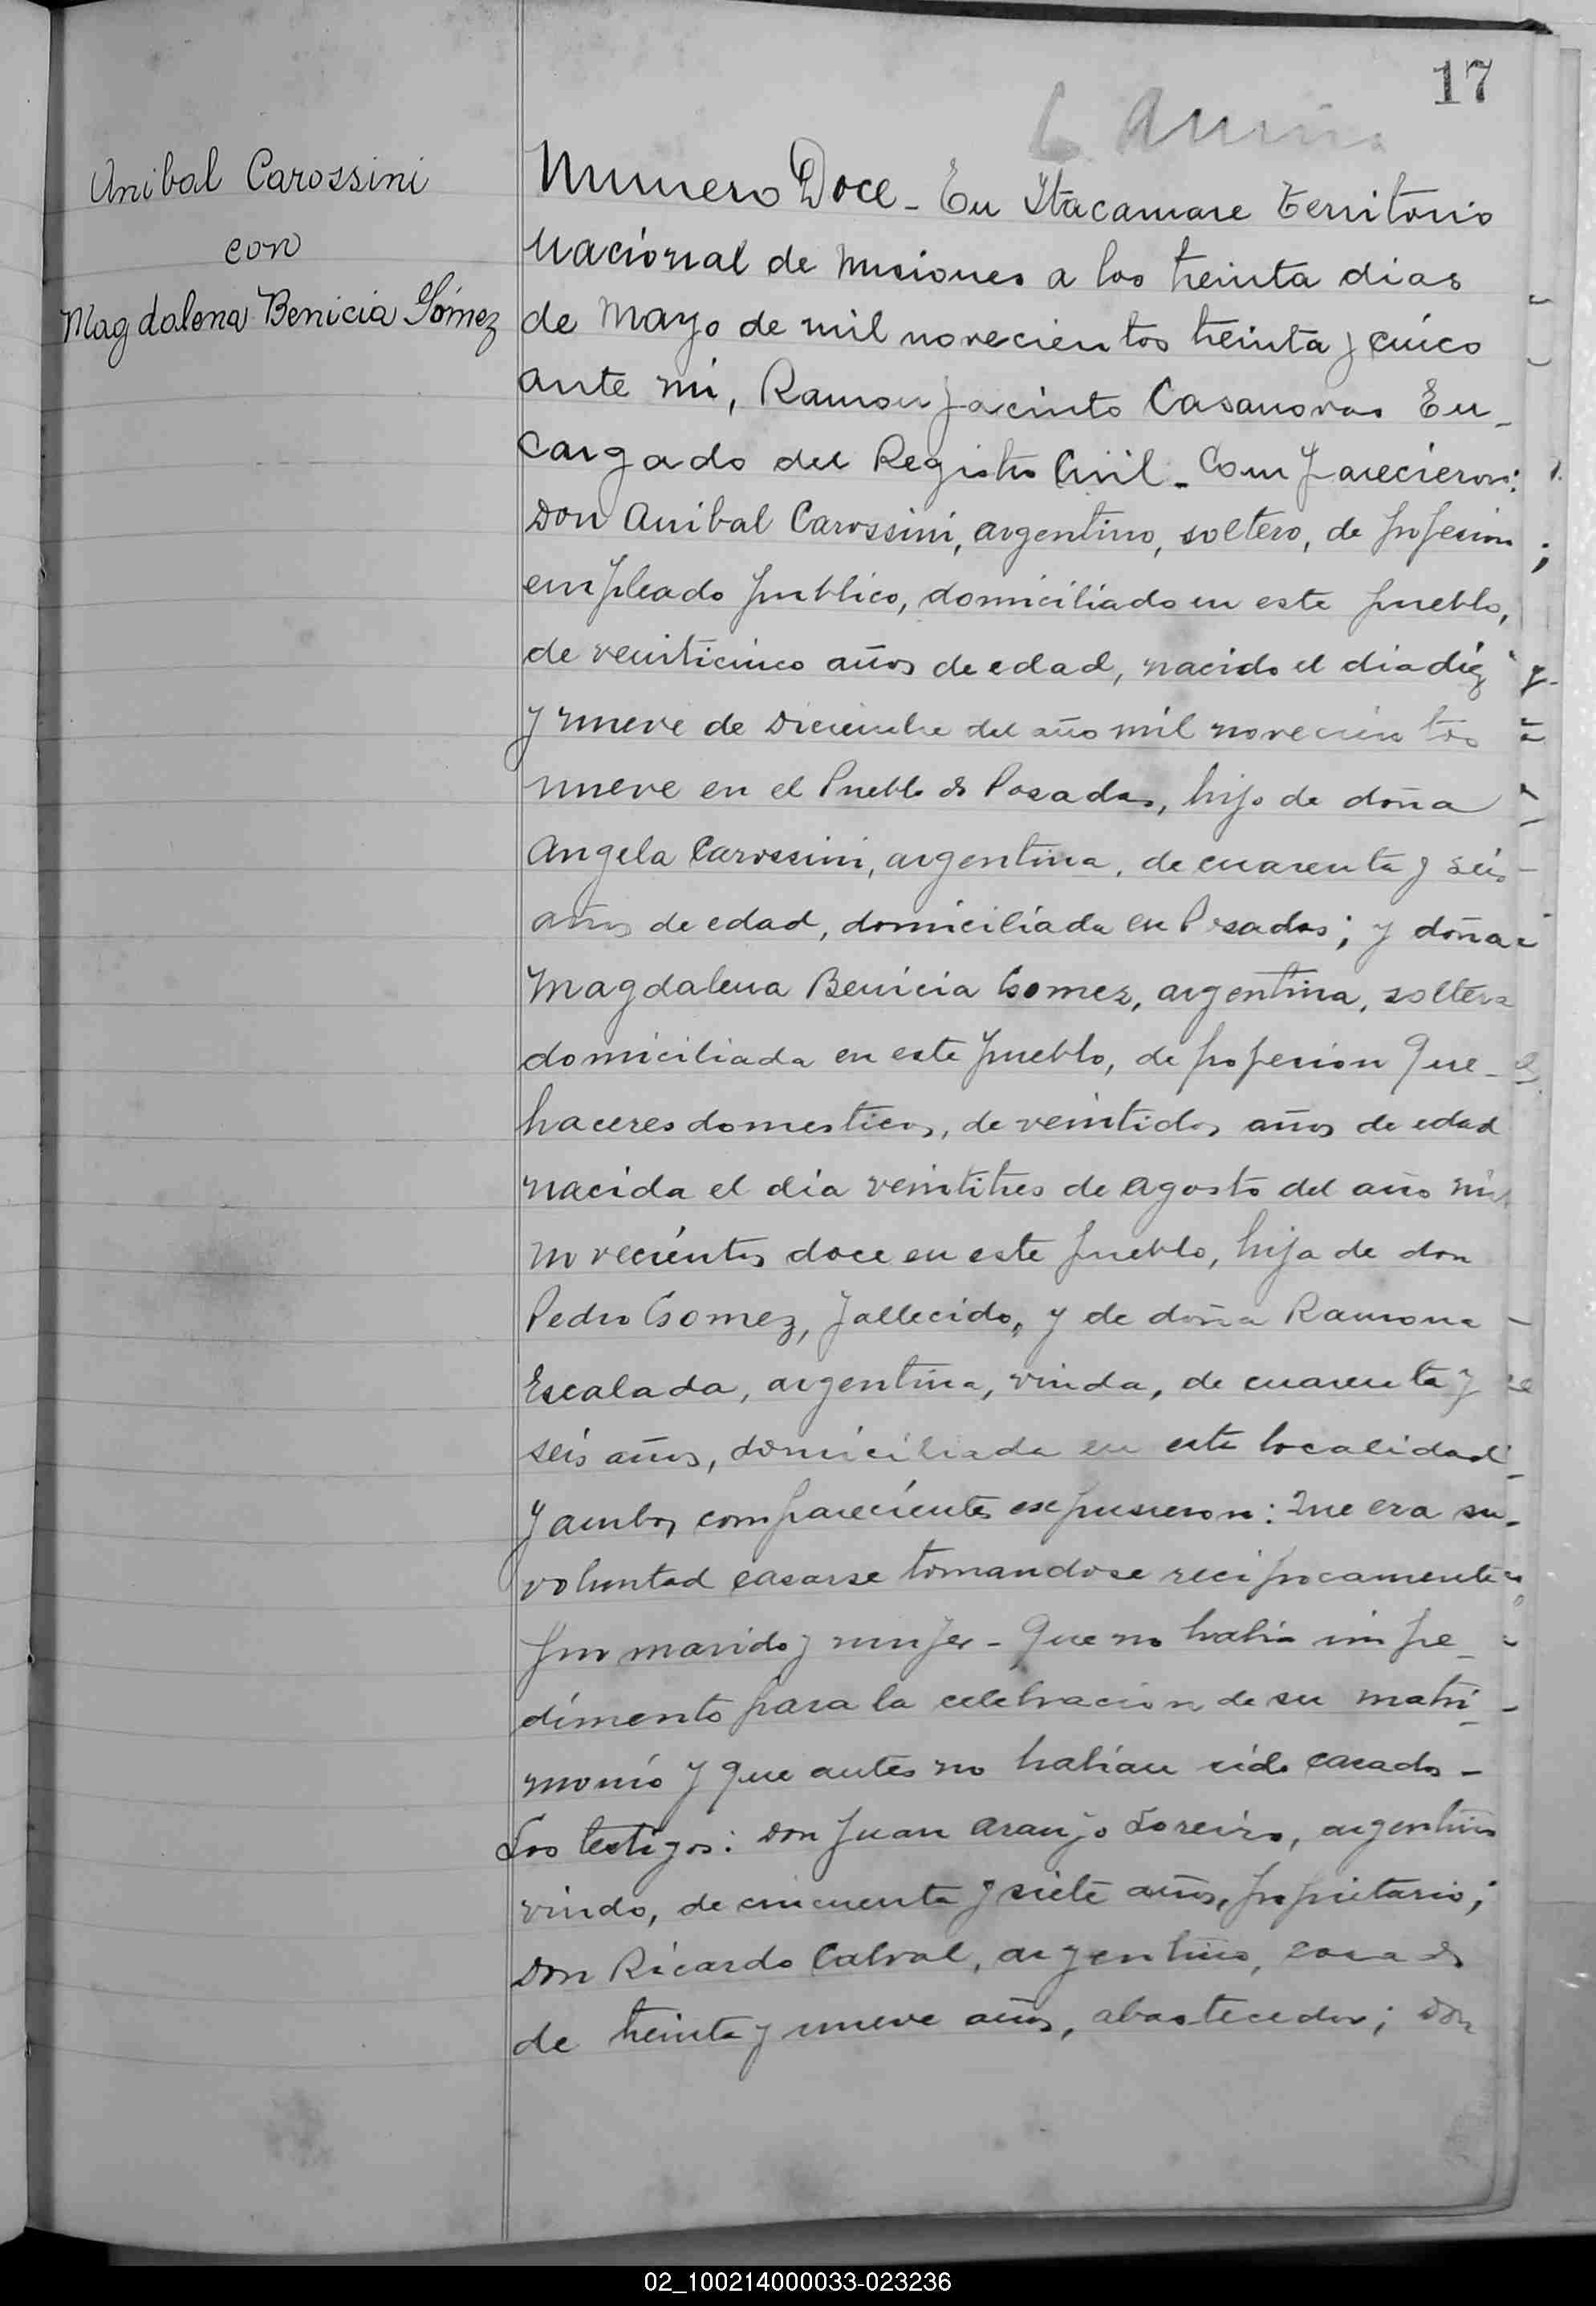 17
Anibal Carossini
con
Magdalena Benicia Gómez
Numero Doce - En Itacaruare territorio
nacional de Misiones a los treinta dias
de Mayo de mil novecientos treinta y cinco
ante mi, Ramon Jacinto Casanovas En-
cargado del Registro Civil - Comparecieron:
Don Anibal Carossini, argentino, soltero, de profesion
empleado publico, domiciliado en este pueblo,
de veinticinco años de edad, nacido el dia diez
y nueve de Diciembre del año mil novecientos
nueve en el Pueblo de Posadas, hijo de doña
Angela Carossini, argentina, de cuarenta y seis
años de edad, domiciliada en Posadas; y doña
Magdalena Benicia Gomez, argentina, soltera
domiciliada en este pueblo, de profesion Que-
haceres domesticos, de veintidos años de edad
nacida el dia veintitres de agosto del año mil
novecientos doce en este pueblo, hija de don
Pedro Gomez, fallecido, y de doña Ramona
Escalada, argentina, viuda, de cuarenta y
seis años, domiciliada en esta localidad
y ambos comparecientes expusieron: Que era su
voluntad casarse tomandose reciprocamente
por marido y mujer - Que no habia impe-
dimento para la celebracion de su matri-
monio y que antes no habian sido casados -
Los testigos: don Juan Araujo Loreiro, argentino
viudo, de cincuenta y siete años, propietario;
Don Ricardo Cabral, argentino, casado
de treinta y nueve años, abastecedor; don
02_100214000033-023236